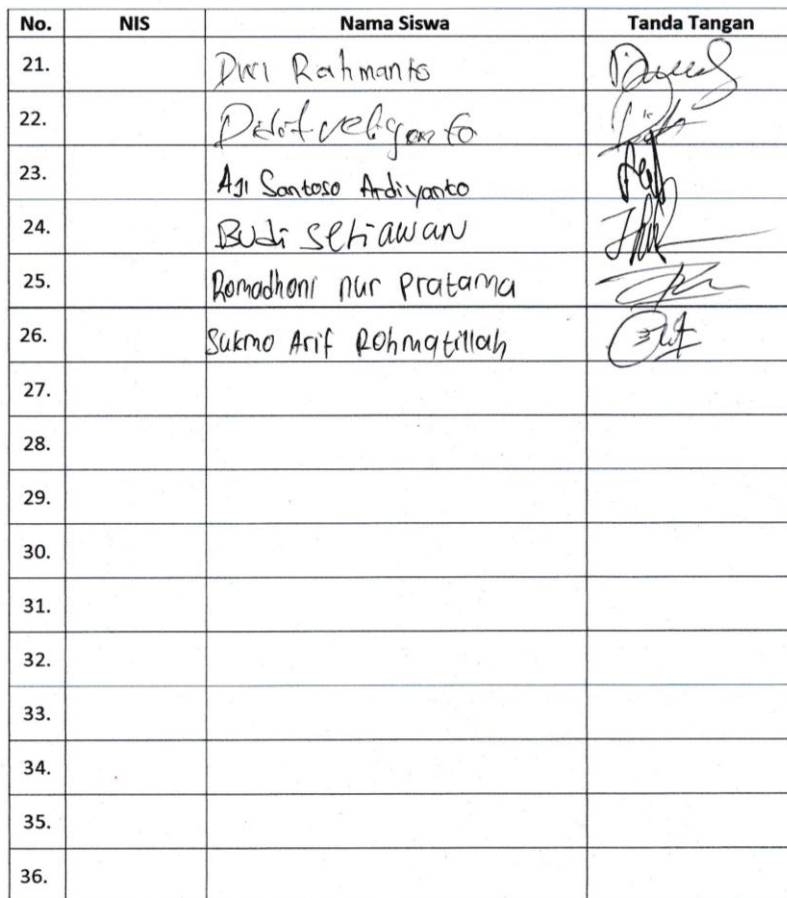 No. NIS Nama Siswa Tanda Tangan
21. Dwi Rahmanto
22.
23. Aji Santoso Ardiyanto
24. Budi Setiawan
25. Romadhoni nur Pratama
26. Sukmo Arif Rohmatillah
27.
28.
29.
30.
31.
32.
33.
34.
35.
36.